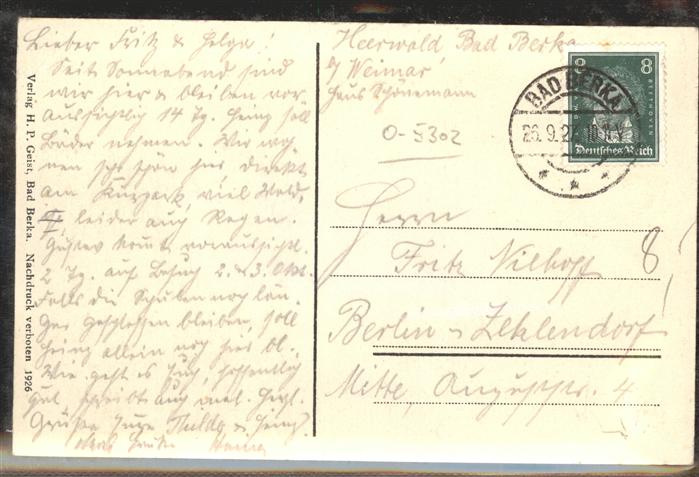 Lieber Fritz & Helga!
Seit Sonnabend sind
wir hier & bleiben vor
aussichtlich 14 Tg. Heinz soll
Bäder nehmen. Wir woh
nen sehr schön hier, direkt
am Kurpark, viel Wald,
leider auch Regen.
Gustav kommt voraussichtl.
2 Tg. auf Besuch 2. & 3. Okt.
Falls die Schulen noch län
ger geschlossen bleiben, soll
Heinz allein noch hier bl.
Wie geht es Euch, hoffentlich
gut, schreibt auch mal. Herzl.
Grüße Eure & Heinz
Verlag H. P. Geist, Bad Berka. Nachdruck verboten 1926
Heerwald Bad Berka
b/ Weimar
Haus Schönemann
0-5302
8 8
BEETHOVEN
Deutsches Reich
BAD BERKA
26.9.27
Herrn
Fritz Vilhoff
Berlin - Zehlendorf
Mitte, Auguststr. 4
8